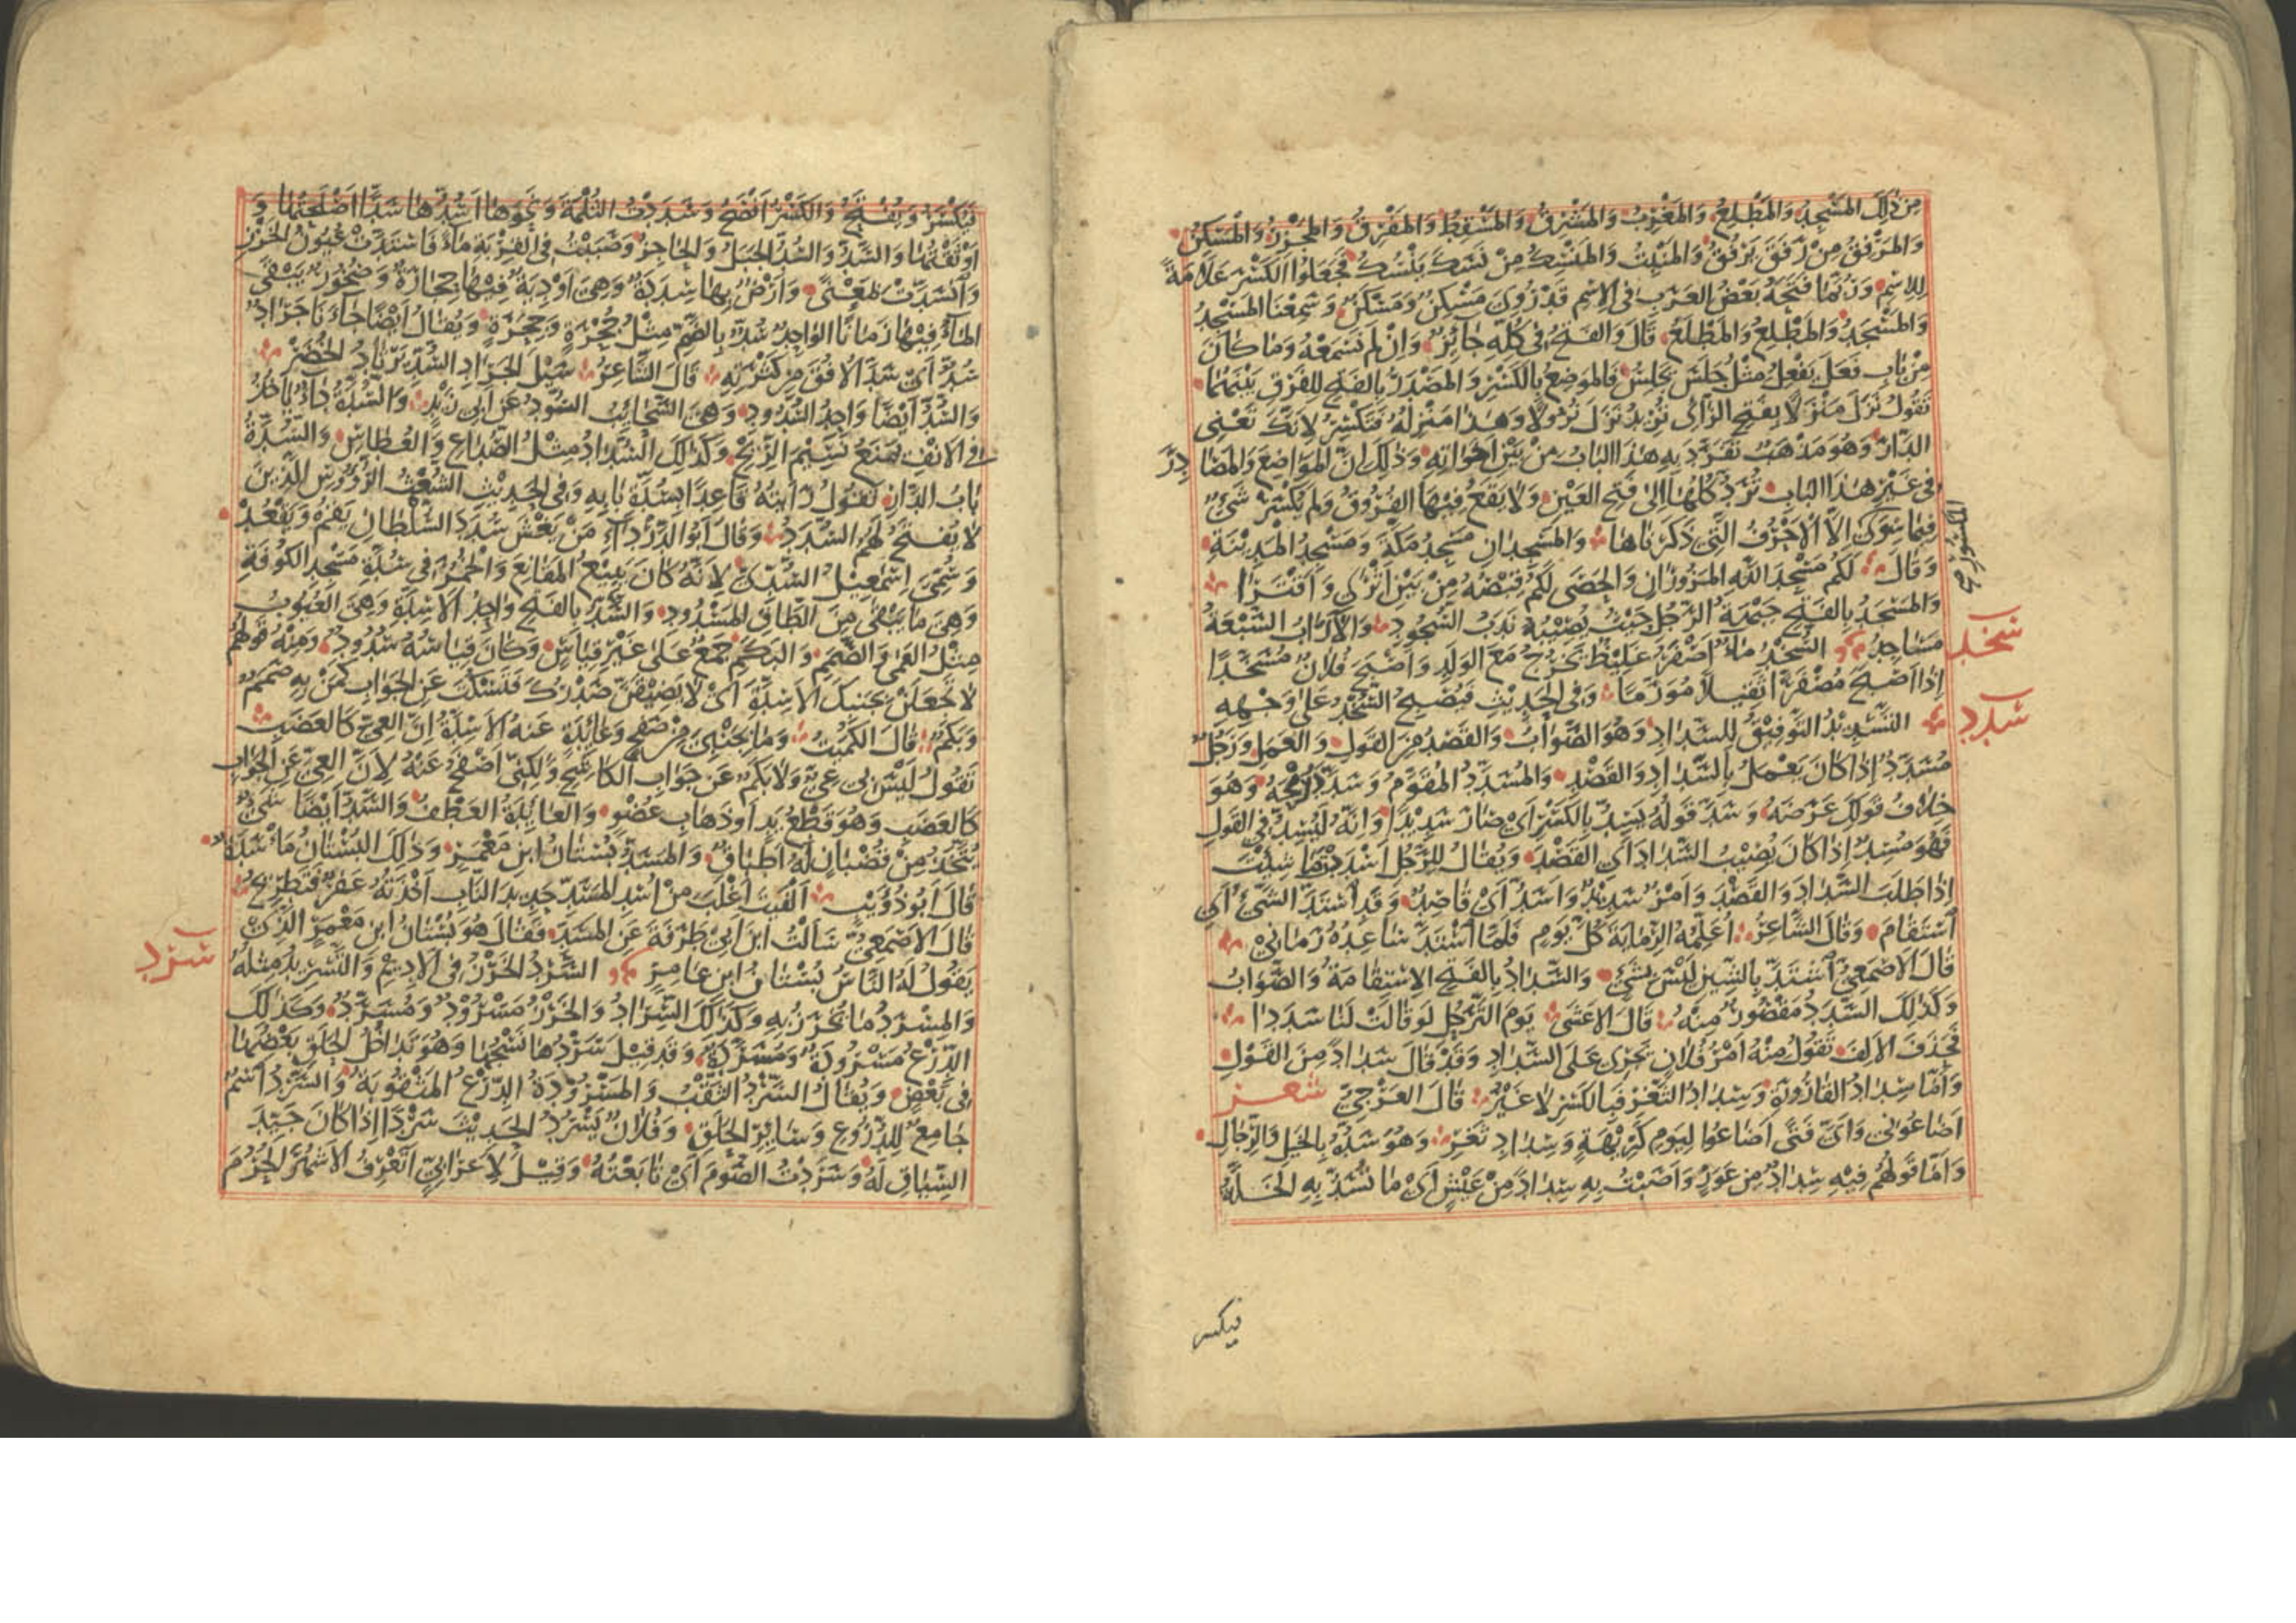 من ذلك المسجد والمطلع والمغرب والمشرق والمسقط والمفرق والمجزر والمسكن
والمرفق من رفق يرفق والمنبت والمنسك من نسك ينسك فجعلوا الكسر علامة
للاسم وربما فتحه بعض العرب في الاسم قد روي مسكن ومسكن وسمعنا المسجد
والمسجد والمطلع والمطلع قال والفتح في كله جائز وان لم نسمعه وما كان
من باب فعل يفعل مثل جلس يجلس فالموضع بالكسر والمصدر بالفتح للفرق بينهما
تقول نزل منزلا بفتح الزاى تريد نزل نزولا وهذا منزله فتكسر لانك تعني
الدار وهو مذهب تفرد به هذا الباب من بين اخواته وذلك ان المواضع والمصادر
في غير هذا الباب ترد كلها الى فتح العين ولا يقع فيها الفروق ولم يكسر شيء
فيما سوى المذكور الا الاحرف التي ذكرناها والمسجدان مسجد مكة ومسجد المدينة
وقال لكم مسجد الله المزوران والحصى لكم قبضه من بين اثرى واقترا
والمسجد بالفتح جبهة الرجل حيث يصيبه ندب السجود والآراب السبعة
مساجد السخد ماء اصفر غليظ يخرج مع الولد واصبح فلان مسخدا
سخد
اذا اصبح مصفرا ثقيلا مورما وفي الحديث فيصبح السخد على وجهه
سدد
التسديد التوفيق للسداد وهو الصواب والقصد من القول والعمل ورجل
مسدد اذا كان يعمل بالسداد والقصد والمسدد المقوم وسدد رمحه وهو
خلاف قولك عرضه وسد قوله يسد بالكسر اي صار سديدا وانه ليسد في القول
فهو مسد اذا كان يصيب السداد اي القصد ويقال للرجل اسددت ما شئت
اذا طلب السداد والقصد وامر سديد واسد اي قاصد وقد استد الشيء اي
استقام وقال الشاعر اعلمه الرماية كل يوم فلما استد ساعده رماني
قال الاصمعي اشتد بالشين ليس بشيء والسداد بالفتح الاستقامة والصواب
وكذلك السدد مقصور منه قال الاعشى يوم الترحل لو قالت لنا سددا
فحذف الالف تقول منه امر فلان يجري على السداد وقد قال سدادا من القول
واما سداد القارورة وسداد الثغر فبالكسر لا غير قال العرجي شعر
اضاعوني واي فتى اضاعوا ليوم كريهة وسداد ثغر وهو سده بالخيل والرجال
واما قولهم فيه سداد من عوز واصبت به سدادا من عيش اي ما تسد به الخلة
فيكسر
فيكسر ويفتح والكسر افصح وسددت الثلمة ونحوها اسدها سدا اصلحتها و
اوثقتها والسد والسد الجبل والحاجز وصببت في القربة ماء فاستدت عيون الخرز
وانسدت بمعنى وارض بها سددة وهي اودية فيها حجارة وصخور يبقى
الماء فيها زمانا الواحد سد بالضم مثل جحر وجحرة ويقال ايضا جاءنا جراد
سد اي سد الافق من كثرته قال الشاعر سيل الجراد السد يرتاد الخضر
والسد ايضا واحد السدود وهي السحائب السود عن ابي زيد والسدة داء ياخذ
في الانف يمنع نسيم الريح وكذلك السداد مثل الصداع والعطاس والسدة
باب الدار تقول رايته قاعدا بسدة بابه وفي الحديث الشعث الرؤوس الذين
لا يفتح لهم السدد وقال ابو الدرداء من يغش سدد السلطان يقم ويقعد
وسمي اسمعيل السدي لانه كان يبيع المقانع والخمر في سدة مسجد الكوفة
وهي ما يبقى من الطاق المسدود والسد بالفتح واحد الاسدة وهي العيوب
مثل العمى والصمم والبكم جمع على غير قياس وكان قياسه سدود ومنه قولهم
لا تجعلن بجنبك الاسدة اي لا يضيقن صدرك فتسكت عن الجواب كمن به صمم
وبكم قال الكميت وما بجنبي من صفح وعائدة عند الاسدة ان العي كالعضب
تقول ليس بي عي ولا بكم عن جواب الكاشح ولكني اصفح عنه لان العي عن الجواب
كالعضب وهو قطع يد او ذهاب عضو والعائدة العطف والسد ايضا شيء
يتخذ من قضبان له اطباق والمسد بستان ابن معمر وذلك البستان ماسدة
قال ابو ذؤيب الفيت اغلب من اسد المسد حديد الناب اخذته عفر فتطريح
قال الاصمعي سالت ابن ابي طرفة عن المسد فقال هو بستان ابن معمر الذي
يقول له الناس بستان ابن عامر السرد الخرز في الاديم والتسريد مثله
سرد
والمسرد ما يخرز به وكذلك السراد والخرز مسرود ومسرد وكذلك
الدرع مسرودة ومسردة وقد قيل سردها نسجها وهو تداخل الحلق بعضها
في بعض ويقال السرد الثقب والمسرودة الدرع المثقوبة والسرد اسم
جامع للدروع وسائر الحلق وفلان يسرد الحديث سردا اذا كان جيد
السياق له وسردت الصوم اي تابعته وقيل لاعرابي اتعرف الاشهر الحرم